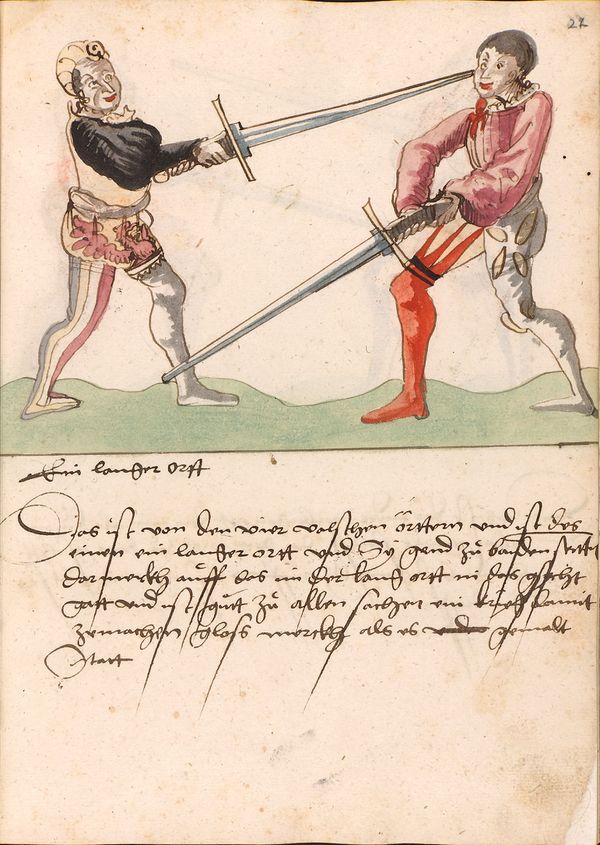 27
Ein langer ortt
Das ist von den vier valschen örttern und ist des
einen ein langer ortt und Sÿ gend zů baiden seitt
dar merckh auff das im der lang ortt in das gsicht
gatt und ist gůtt zů allen sachen ein bruch damit
zemachen gloss merckh als es gemalt
Statt